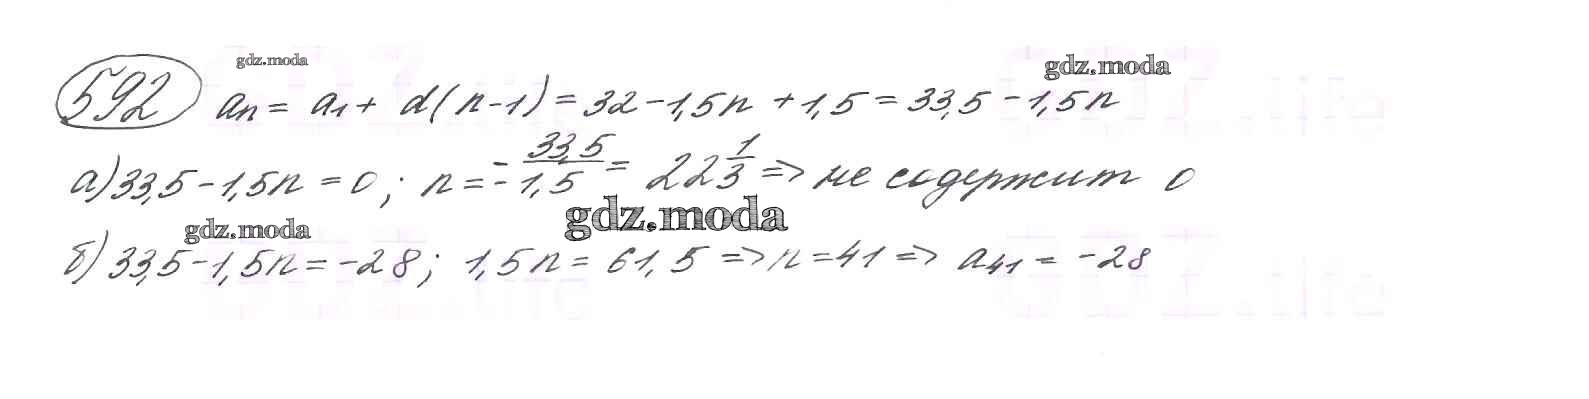 gdz.moda
gdz.moda
592 aₙ = a₁ + d(n-1) = 32 - 1,5n + 1,5 = 33,5 - 1,5n
а) 33,5 - 1,5n = 0; n = -33,5/-1,5 = 22 1/3 => не содержит 0
gdz.moda
gdz.moda
б) 33,5 - 1,5n = -28; 1,5n = 61,5 => n = 41 => a₄₁ = -28